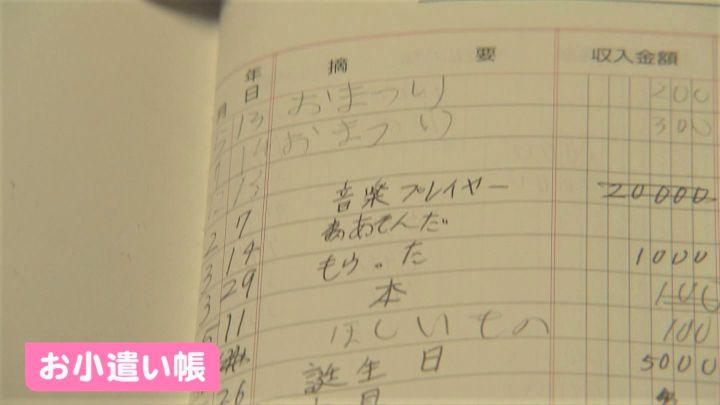 年
月日 摘要 収入金額
13 おまつり 200
14 おまつり 300
13 音楽プレイヤー 20000
2 7 ああてんだ
3 14 もらった 1000
3 29 本 100
5 11 ほしいもの 100
誕生日 5000
26
お小遣い帳